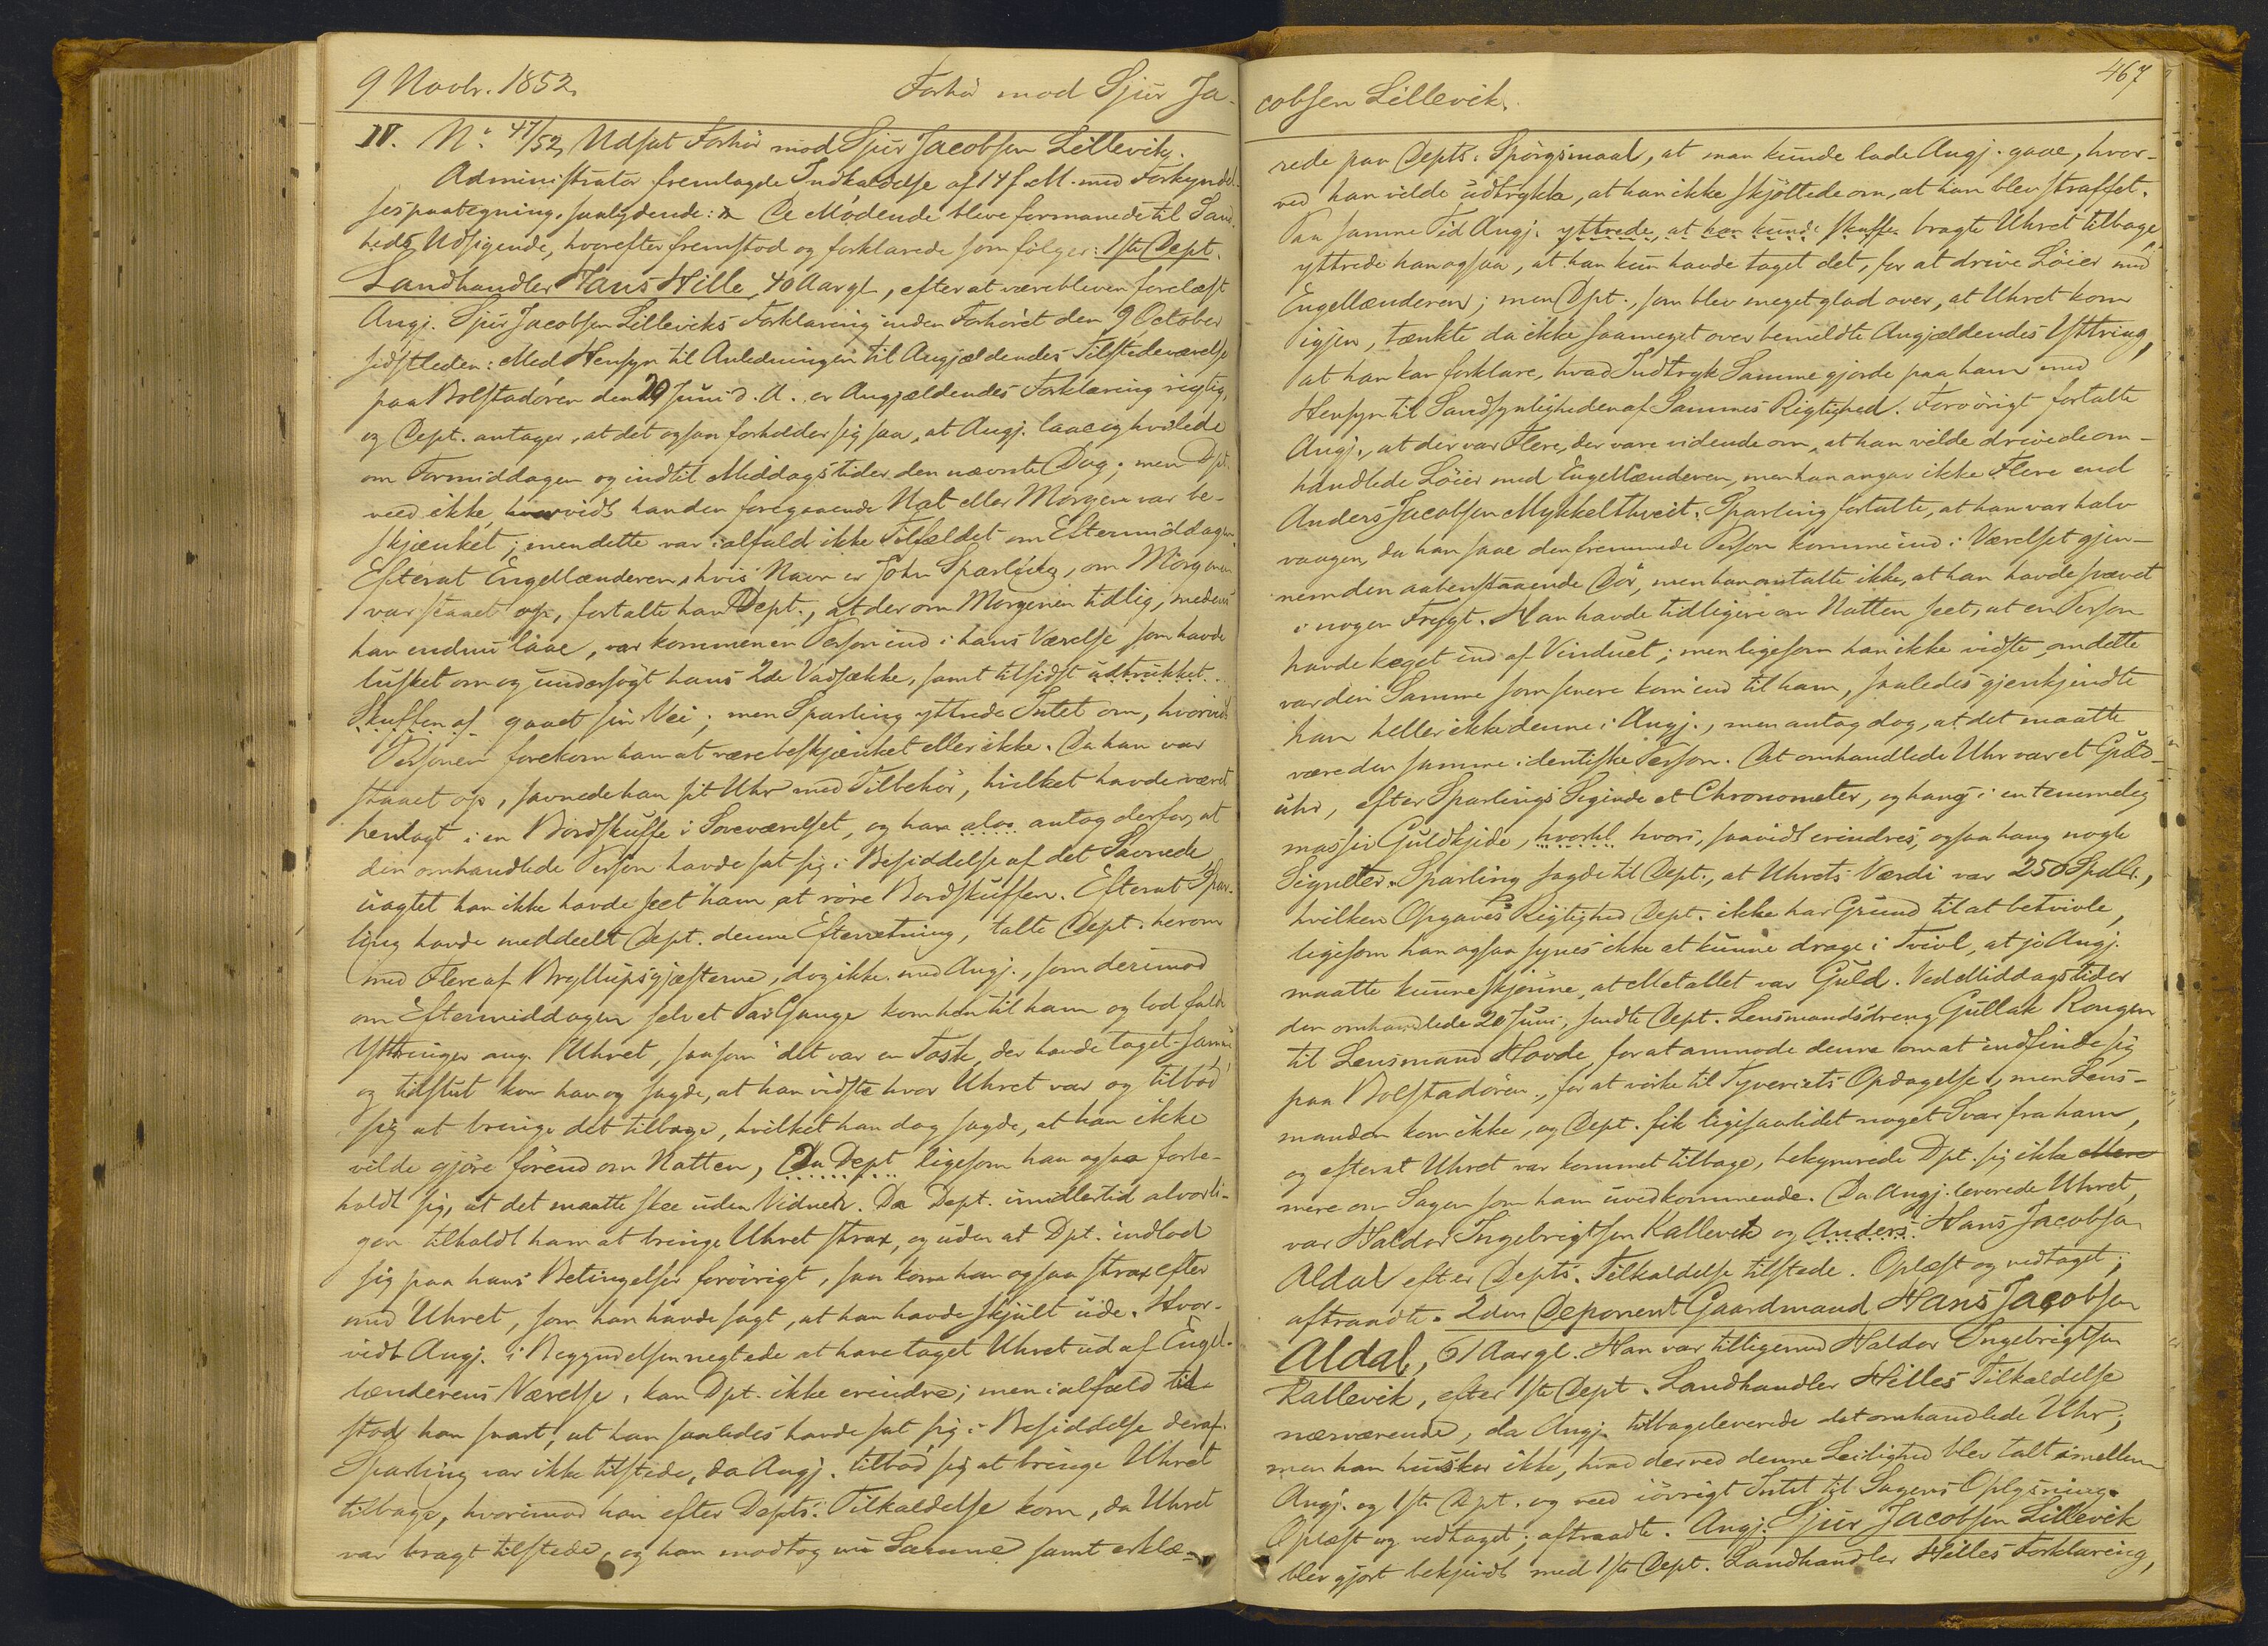 9 Novbr. 1852.
Forhör mod Sjur Ja-
IV. No. 47/52, Udsat Forhör mod Sjur Jacobsen Lillevik.
Administrator fremlagde Indkaldelse af 14 f. M. med Forkyndel-
sespaategning, saalydende: De Mödende bleve formanede til Sand-
heds Udsigende, hvorefter fremstod og forklarede som fölger: 1ste Dept.
Landhandler Hans Hille, 40 Aar gl., efter at være bleven forelæst
Angj. Sjur Jacobsen Lilleviks Forklaring under Forhöret den 9 October
sidstleden: Med Hensyn til Anledningen til Angjældendes Tilstedeværelse
paa Bolstadören den 20 Juni d. A. er Angjældendes Forklaring rigtig,
og Dept. antager, at det ogsaa forholder sig saa, at Angj. laae og hvilede
om Formiddagen og indtil Middagstider den nævnte Dag; men Dpt.
veed ikke hvorvidt han den foregaaende Nat eller Morgen var be-
skjænket; men dette var ialfald ikke Tilfældet om Eftermiddagen.
Efterat Engellænderen, hvis Navn er John Sparling, om Morgenen
var staaet op, fortalte han Dept., at der om Morgenen tidlig, medens
han endnu laae, var kommen en Person ind i hans Værelse som havde
lusket om og undersögt hans 2de Vadsække, samt tilsidst udtrukket
Skuffen af gaaet sin Vei; men Sparling yttrede Intet om, hvorvidt
Personen forekom ham at være beskjænket eller ikke. Da han var
staaet op, savnede han sit Uhr med Tilbehör, hvilket havde været
henlagt i en Bordskuffe i Soveværelset, og han alos antog derfor, at
den omhandlede Person havde sat sig i Besiddelse af det Savnede
uagtet han ikke havde seet ham at röre Bordskuffen. Efterat Spar-
ling havde meddeelt Dept. denne Efterretning, talte Dept. herom
med Flere af Bryllupsgjæsterne, dog ikke med Angj., som derimod
om Eftermiddagen selv et Par Gange kom hen til ham og lod falde
Yttringer ang. Uhret, saasom "det var en Tosk, der havde taget Samme"
og tilslut kom han og sagde, at han vidste hvor Uhret var og tilböd
sig at bringe det tilbage, hvilket han dog sagde, at han ikke
vilde gjöre förend om Natten, Da Dept ligesom han ogsaa forbe-
holdt sig, at det maatte skee uden Vidner. Da Dept. imidlertid alvorli-
gen tilholdt ham at bringe Uhret strax, og uden at Dpt. indlod
sig paa hans Betingelser forövrigt, saa kom han ogsaa strax efter
med Uhret, som han havde sagt, at han havde skjult ude. Hvor-
vidt Angj. i Begyndelsen negtede at have taget Uhret ud af Engel-
lænderens Værelse, kan Dpt. ikke erindre; men ialfald til-
stod han snart, at han saaledes havde sat sig i Besiddelse deraf.
Sparling var ikke tilstede, da Angj. tilböd sig at bringe Uhret
tilbage, hvorimod han efter Depts. Tilkaldelse kom, da Uhret
var bragt tilstede, og han modtog nu Samme samt erklæ-
467
cobsen Lillevik.
rede paa Depts. Spörgsmaal, at man kunde lade Angj. gaae, hvor-
ved han vilde udtrykke, at han ikke skjöttede om, at han blev straffet.
Paa samme Tid Angj. yttrede, at han kunde skaffe bragte Uhret tilbage
yttrede han ogsaa, at han kun havde taget det, for at drive Löier med
Engellænderen; men Dpt., som blev meget glad over, at Uhret kom
igjen, tænkte da ikke saameget over bemeldte Angjældendes Yttring,
at han kan forklare, hvad Indtryk Samme gjorde paa ham med
Hensyn til Sandsynligheden af Sammes Rigtighed. Forövrigt fortalte
Angj., at der var Flere, der vare vidende om, at han vilde drive de om-
handlede Löier med Engellænderen, men han angav ikke Flere end
Anders Jacobsen Mykkelthveit. Sparling fortalte, at han var halv
vaagen, da han saae den fremmede Person komme ind i Værelset gjen-
nem den aabenstaaende Dör, men han omtalte ikke, at han havde svævet
i nogen Frygt. Han havde tidligere om Natten seet, at en Person
havde keget ind af Vinduet; men ligesom han ikke vidste, om dette
var den Samme som senere kom ind til ham, saaledes gjenkjendte
han heller ikke denne i Angj., men antog dog, at det maatte
være den samme identiske Person. Det omhandlede Uhr var et Guld-
uhr, efter Sparlings Sigende et Chronometer, og hang i en temmelig
massiv Guldkjede, hvorhl hvori, saavidt erindres, ogsaa hang nogle
Signeter. Sparling sagde til Dept., at Uhrets Værdi var 250 Spdlr.,
hvilken Opgaves Rigtighed Dept. ikke har Grund til at betvivle,
ligesom han ogsaa synes ikke at kunne drage i Tvivl, at jo Angj.
maatte kunne skjönne, at Metallet var Guld. Ved Middagstider
den omhandlede 20 Juni, sendte Dept. Lensmandsdreng Gullak Rongen
til Lensmand Hovde, for at anmode denne om at indfinde sig
paa Bolstadören, for at virke til Tyveriets Opdagelse, men Lens-
manden kom ikke, og Dept. fik ligesaalidet noget Svar fra ham,
og efterat Uhret var kommet tilbage, bekymrede Dpt. sig ikke mere
mere om Sagen som ham uvedkommende. Da Angj. leverede Uhret,
var Haldor Ingebrigtsen Kallevik og Anders Hans Jacobsen
Aldal efter Depts. Tilkaldelse tilstede. Oplæst og vedtaget;
aftraadte. 2den Deponent Gaardmand Hans Jacobsen
Aldal, 61 Aar gl. Han var tilligemed Haldor Ingebrigtsen
Kallevik, efter 1ste Dept. Landhandler Hilles Tilkaldelse
nærværende, da Angj. tilbageleverede det omhandlede Uhr;
men han husker ikke, hvad der ved denne Leilighed blev talt imellem
Angj. og 1ste Dpt. og veed iövrigt Intet til Sagens Oplysning.
Oplæst og vedtaget; aftraadte. Angj. Sjur Jacobsen Lillevik
blev gjort bekjendt med 1ste Dept. Landhandler Hilles Forklaring,